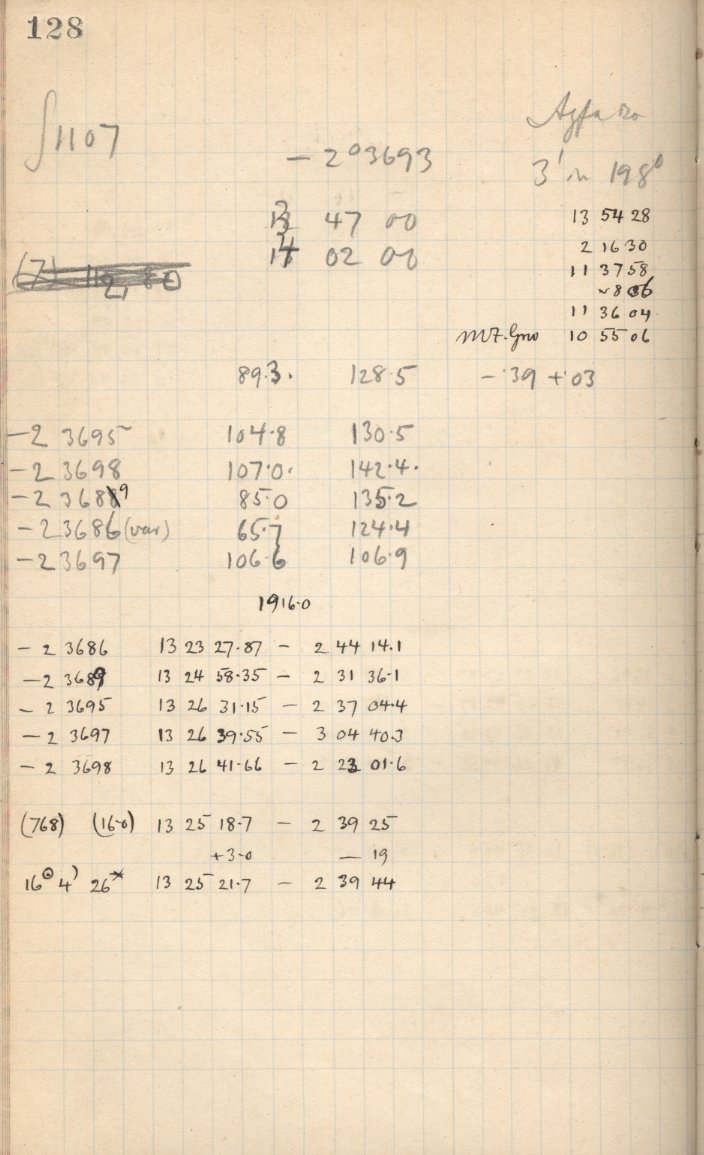 128
∫1107
Agfa
- 2°3693
3' in 198°
13 47 00
13 54 28
14 02 00
2 16 30
11 37 58
11 36 04
10 55 06
89.3. 128.5 - .39 + .03
-2 3695 104.8 130.5
-2 3698 107.0. 142.4.
-2 3689 85.0 135.2
-2 3686 (var) 65.7 124.4
-2 3697 106.6 106.9
1916.0
- 2 3686 13 23 27.87 - 2 44 14.1
- 2 3689 13 24 58.35 - 2 31 36.1
- 2 3695 13 26 31.15 - 2 37 04.4
- 2 3697 13 26 39.55 - 3 04 40.3
- 2 3698 13 26 41.66 - 2 23 01.6
(768) (16.0) 13 25 18.7 - 2 39 25
+3.0 - 19
13 25 21.7 - 2 39 44